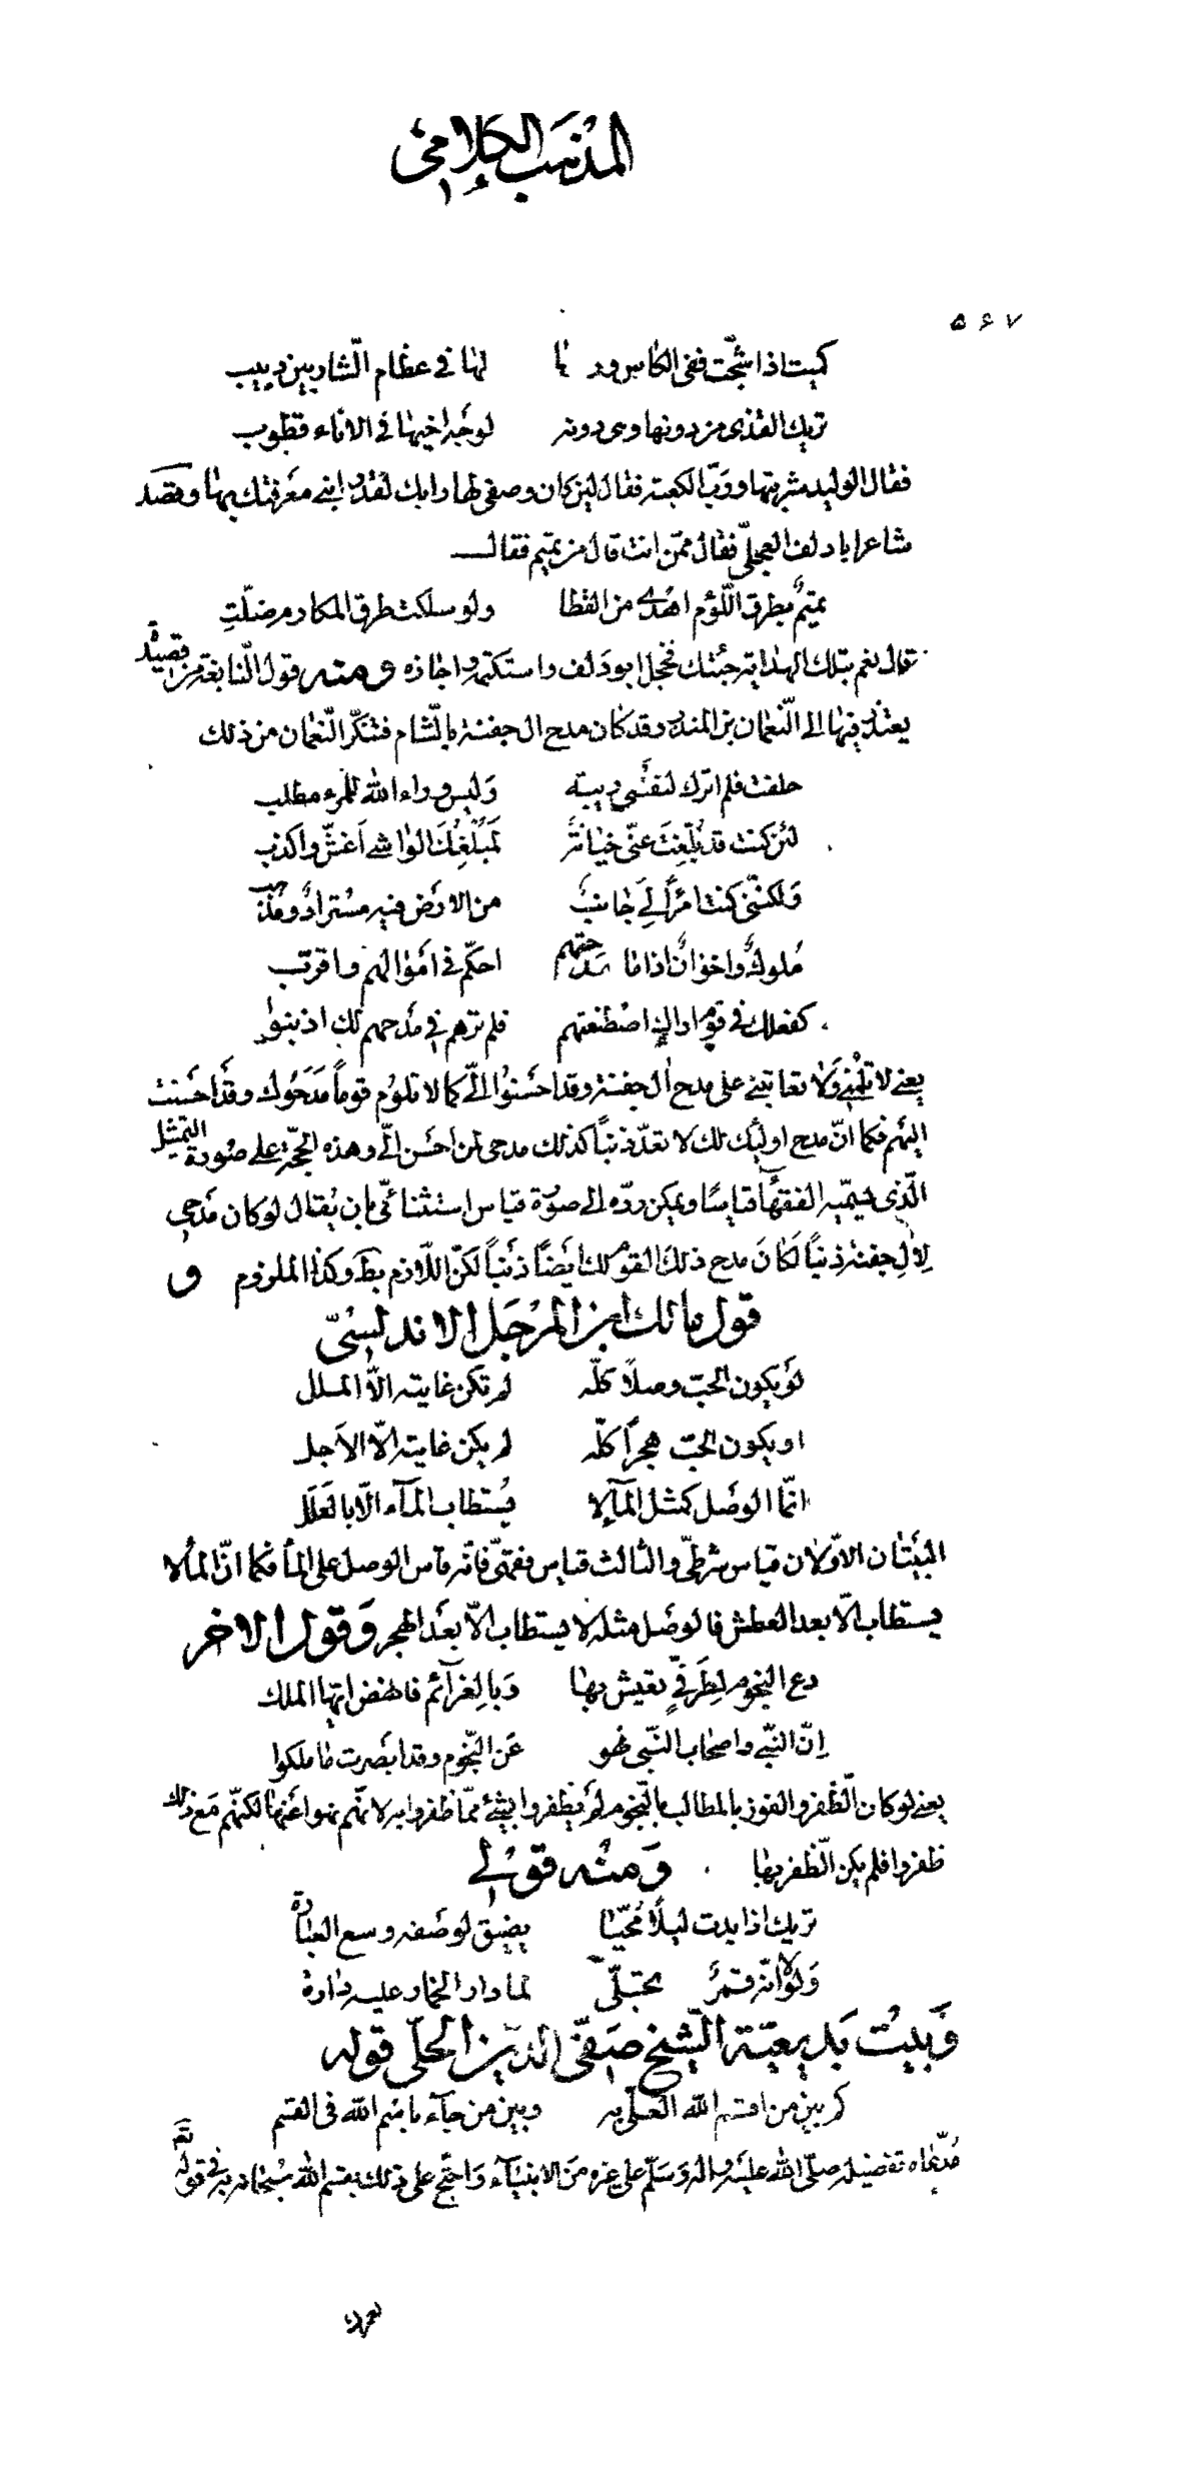 المذهب الكلامي
۵۶۷
كميت اذا شجّت ففى الكاس وردها لها فى عظام الشّاربين دبيب
تريك القذى من دونها وهى دونه لوجه اخيها فى الاناء قطوب
فقال الوليد شربتها وربّ الكعبة فقال لئن كان وصفى لها رابك لقد رابنى معرفتك بها وقصد
شاعر ابا دلف العجلىّ فقال ممّن انت قال من تميم فقال
تميمٌ بطرق اللّؤم اهدى من القطا ولو سلكت طرق المكارم ضلّتِ
قال نعم بتلك الهداية جئتك فخجل ابو دلف واستكتمه واجازه ومنه قول النّابغة من قصيدة
يعتذر فيها الى النّعمان بن المنذر وقد كان مدح ال جفنة بالشّام فتنكّر النّعمان من ذلك
حلفت فلم اترك لنفسى ريبة وَليس وراء الله للمرء مطلب
لئن كنت قد بُلّغتَ عنّى خيانةً لَمُبلِغُكَ الواشى اَغشّ واكذب
وَلكنّنى كنت امرأً لِىَ جانبٌ من الارض فيه مُسترادٌ ومذهب
مُلوكٌ واخوانٌ اذا ما مدحتهم احكّم فى اموالهم واقرّب
كفعلك فى قوم اراك اصطنعتهم فلم ترهم فى مدحهم لك اذنبوا
يعنى لا تلمنى وَلا تعاتبنى على مدح ال جفنة وقد احسَنوا الىّ كما لا تلوُم قوماً مَدَحُوك وقد احسَنت
اليهم فكما انّ مدح اولئك لك لا تعدّ ذنباً كذلك مدحى لمن احسَن الىّ وهذه الحجّة على صُورة التّمثيل
الّذى يسمّيه الفقهآء قياسًا ويمكن ردّه الى صورة قياس استثنائىّ بان يُقال لو كان مَدحى
لِاٰلِ جفنة ذنباً لكانَ مدح ذلك القوم لك ايضًا ذَنباً لكنّ اللّازم بط وكذا الملزوم و
قول مالك ابن المُرَجَّل الاندلسىّ
لَو يكون الحبّ وصلاً كلّه لم تكن غايته الّا الملل
او يكون الحبّ هجراً كلّه لم يكن غايته الّا الاَجل
انّما الوصَل كمثل المآء لا يُستطاب المآء الّا بالعَلَل
البيتان الاوّلان قياس شرطىّ والثالث قياس فقهىّ فانّه قاس الوصل على المآء فكما انّ المآء لا
يستطاب الّا بعد العطش فالوصَل مثله لا يستطاب الّا بعَد الهجر وَقول الاخر
دع النجوم لِطَرقىٍّ يعيش بها وَبالعزآئم فانهض ايّها الملك
اِنّ النّبى واصحاب النّبى نهوا عَن النّجوم وقد ابصرت ما ملكوا
يعنى لو كان الظّفر والفوز بالمطالب بالنّجوم لم يظفروا بشئ ممّا ظفروا به لانّهم نهوا عَنها لكنّهم مَع ذلك
ظفروا فلم يكن الظّفر بها وَمنه قولى
تريك اذا بدت ليلًا مُحيّا يضيق لوصَفه وسع العبارة
وَلولا انّه قمرٌ تجلّى لما دار الخمار عليه دارة
وَبيت بَديعيّة الشّيخ صَفىّ الدّين الحلّى قوله
كم بين من اقسَم الله العلىّ به وبين من جآء باسم الله فى القسم
مُدّعاه تفضيله صلّى الله عليه واله وَسَلّم على غيره مِنَ الانبياء وَاحتجّ على ذلك بقسم الله سُبحانه به فى قوله تعَ